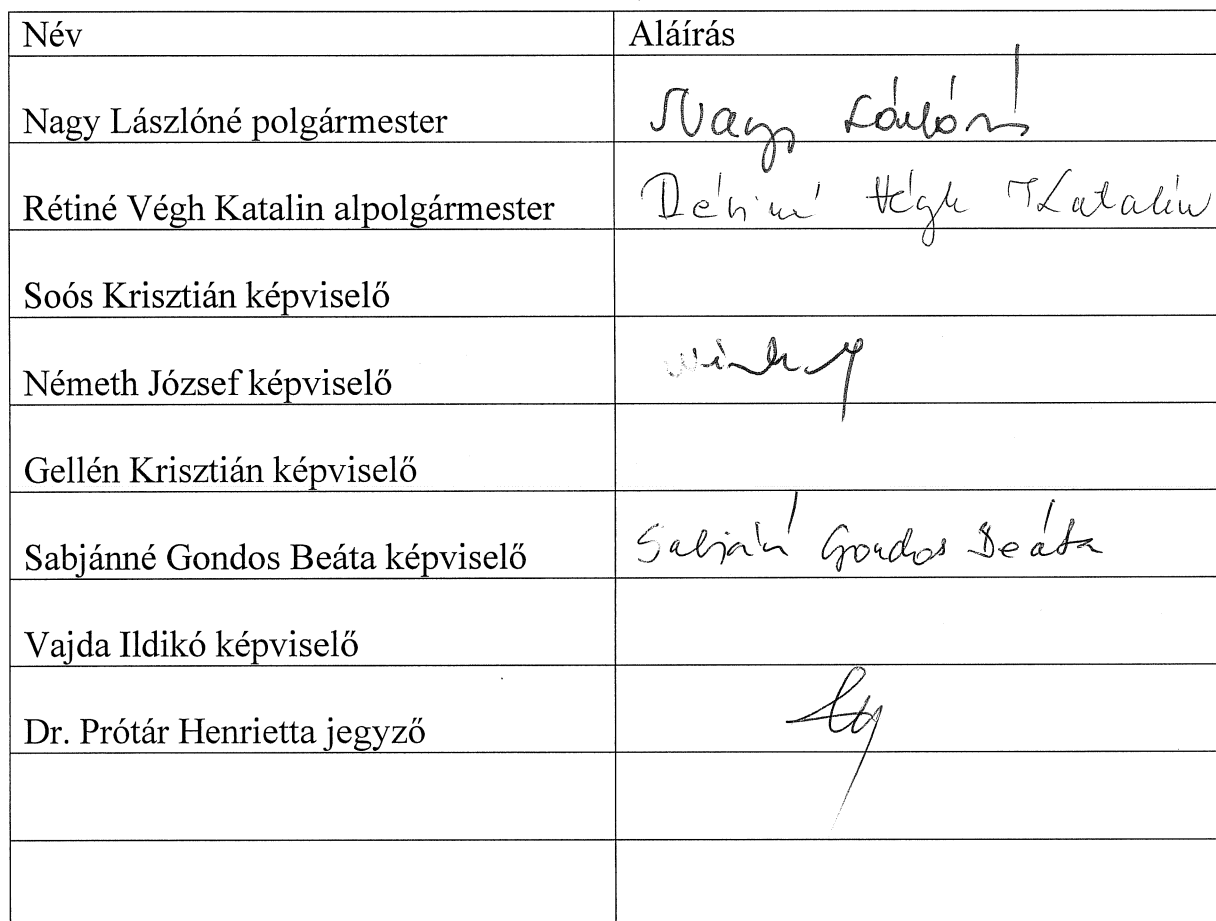 Név Aláírás
Nagy Lászlóné polgármester Nagy Lászlóné
Rétiné Végh Katalin alpolgármester Rétiné Végh Katalin
Soós Krisztián képviselő
Németh József képviselő
Gellén Krisztián képviselő
Sabjánné Gondos Beáta képviselő Sabjánné Gondos Beáta
Vajda Ildikó képviselő
Dr. Prótár Henrietta jegyző